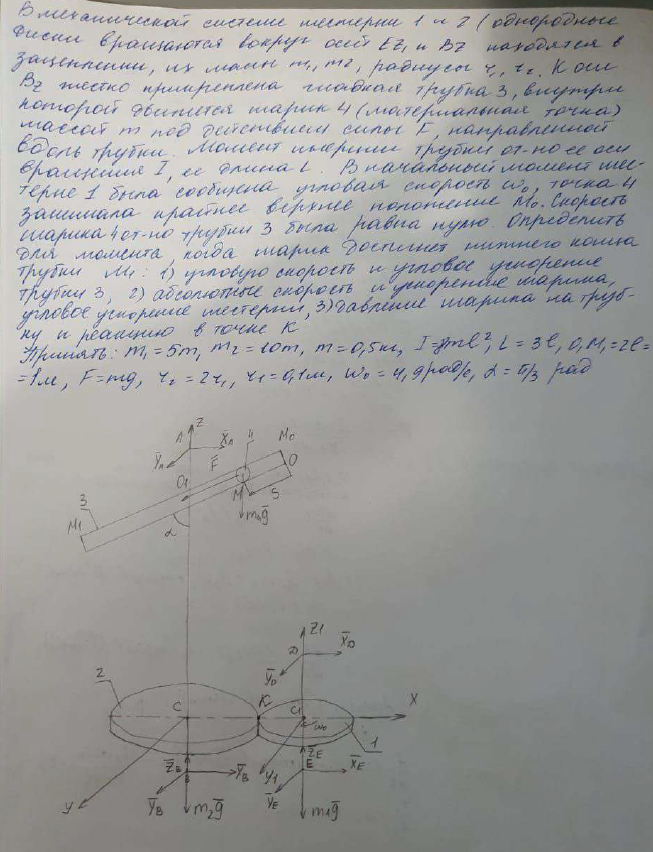 В механической системе шестерни 1 и 2 (однородные
диски вращаются вокруг осей EZ1 и BZ находятся в
зацеплении, их массы m1, m2, радиусы r1, r2. К оси
Bz жестко прикреплена гладкая трубка 3, внутри
которой движется шарик 4 (материальная точка)
массой m под действием силы F, направленной
вдоль трубки. Момент инерции трубки от-но ее оси
вращения I, ее длина L. В начальный момент шес-
терне 1 была сообщена угловая скорость ω0, точка 4
занимала крайнее верхнее положение M0. Скорость
шарика 4 от-но трубки 3 была равна нулю. Определить
для момента, когда шарик достигнет нижнего конца
трубки M1: 1) угловую скорость и угловое ускорение
трубки 3, 2) абсолютные скорость и ускорение шарика,
угловое ускорение шестерни, 3) давление шарика на труб-
ку и реакцию в точке K
Принять: m1 = 5m, m2 = 10m, m = 0,5кг, I = ml², L = 3l, O1M1 = 2l =
= 1м, F = mg, r2 = 2r1, r1 = 0,1м, ω0 = 4,9рад/с, α = π/3 рад
A Z X̄A 4 M0
ȲA F̄ O
O1
3 M S
M1 m g̅
α
Z1
D X̄D
ȲD
2 C K C1 X
ω0 1
Z̄B Y1 Z̄E
B ȲB E X̄E
y ȲB ȲE
m2g̅ m1g̅